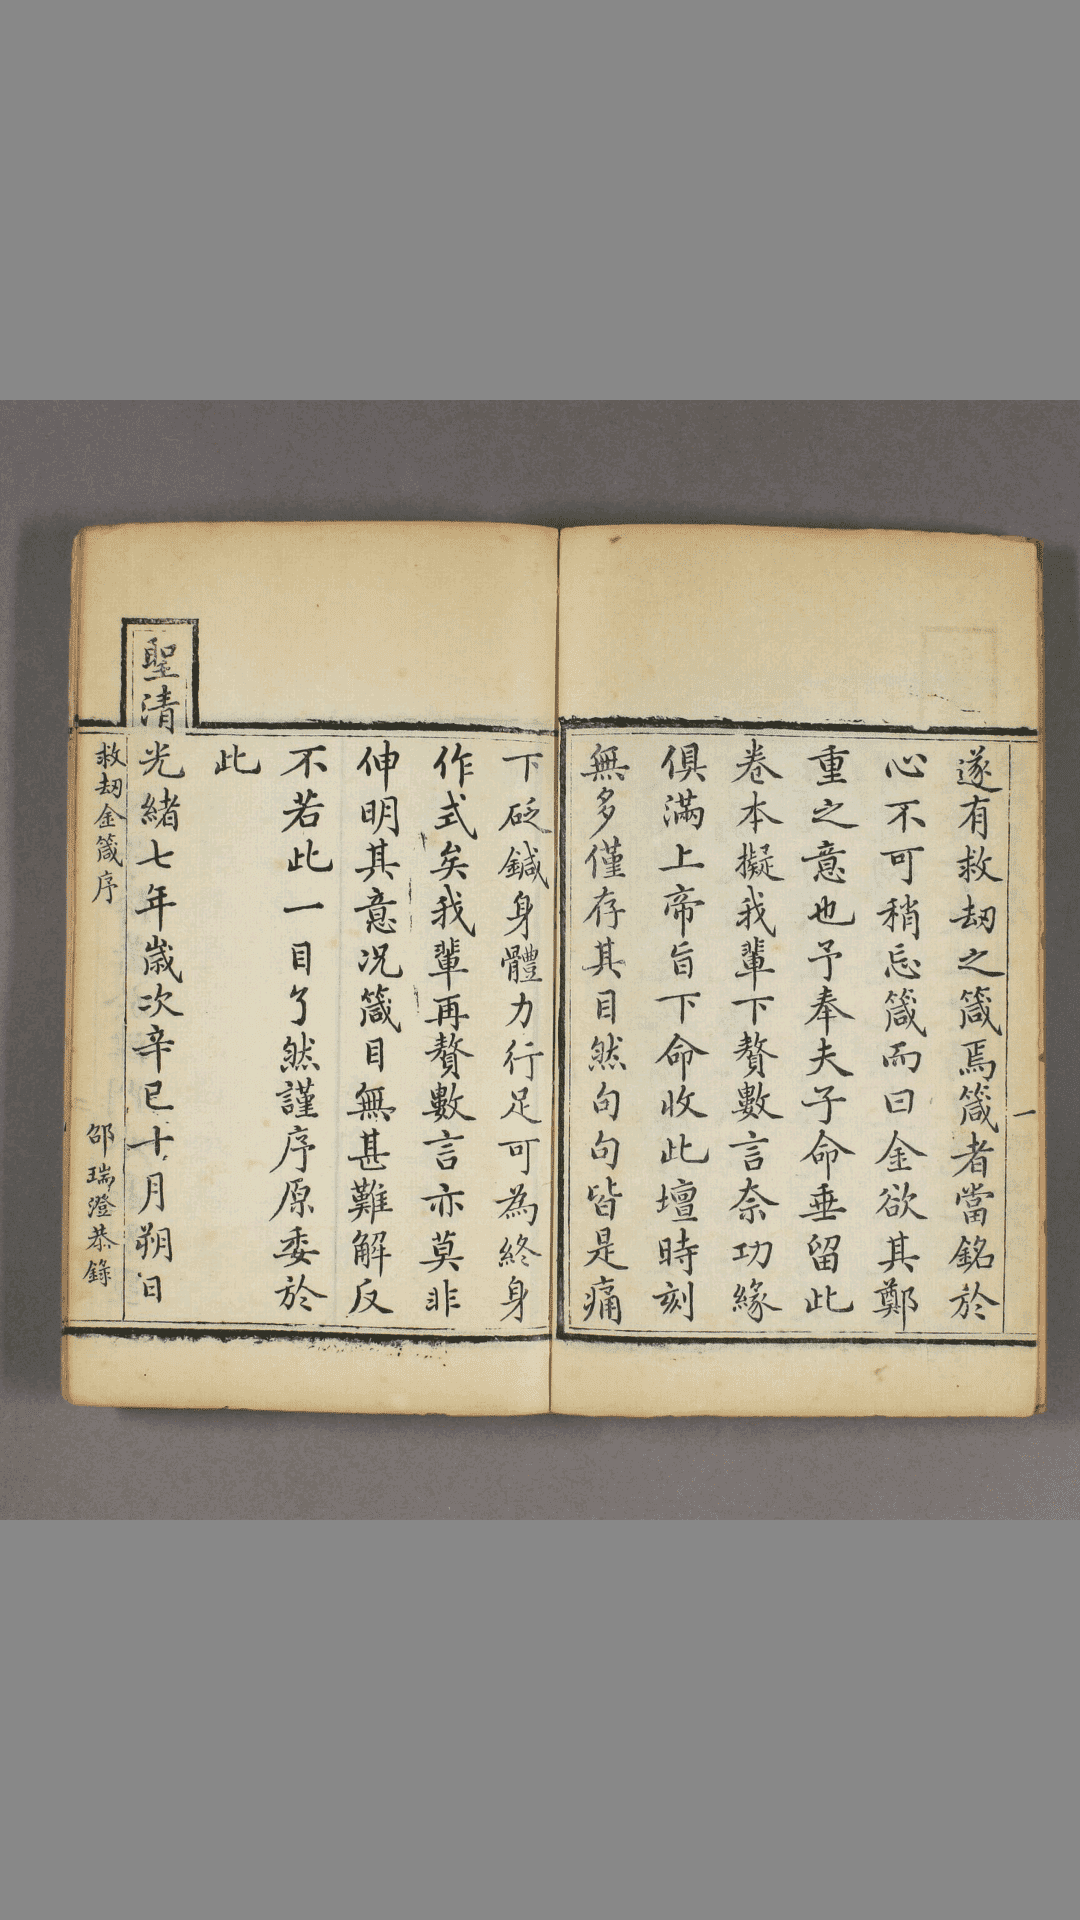 遂有救刼之箴焉箴者當銘於
心不可稍忘箴而曰金欲其鄭
重之意也予奉夫子命垂留此
卷本擬我輩下贅數言奈功緣
俱滿上帝旨下命收此壇時刻
無多僅存其目然句句皆是痛
下砭鍼身體力行足可為終身
作式矣我輩再贅數言亦莫非
伸明其意况箴目無甚難解反
不若此一目了然謹序原委於
此
聖清光緒七年歲次辛巳十月朔日
救刼金箴序
邵瑞澄恭錄
一